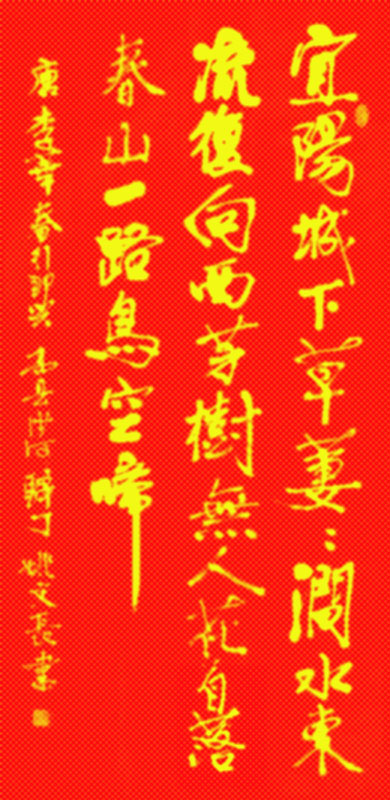 宜陽城下草萋〻澗水東
流復向西芳樹無人花自落
春山一路鳥空啼
唐李華春行即興 姚文長書